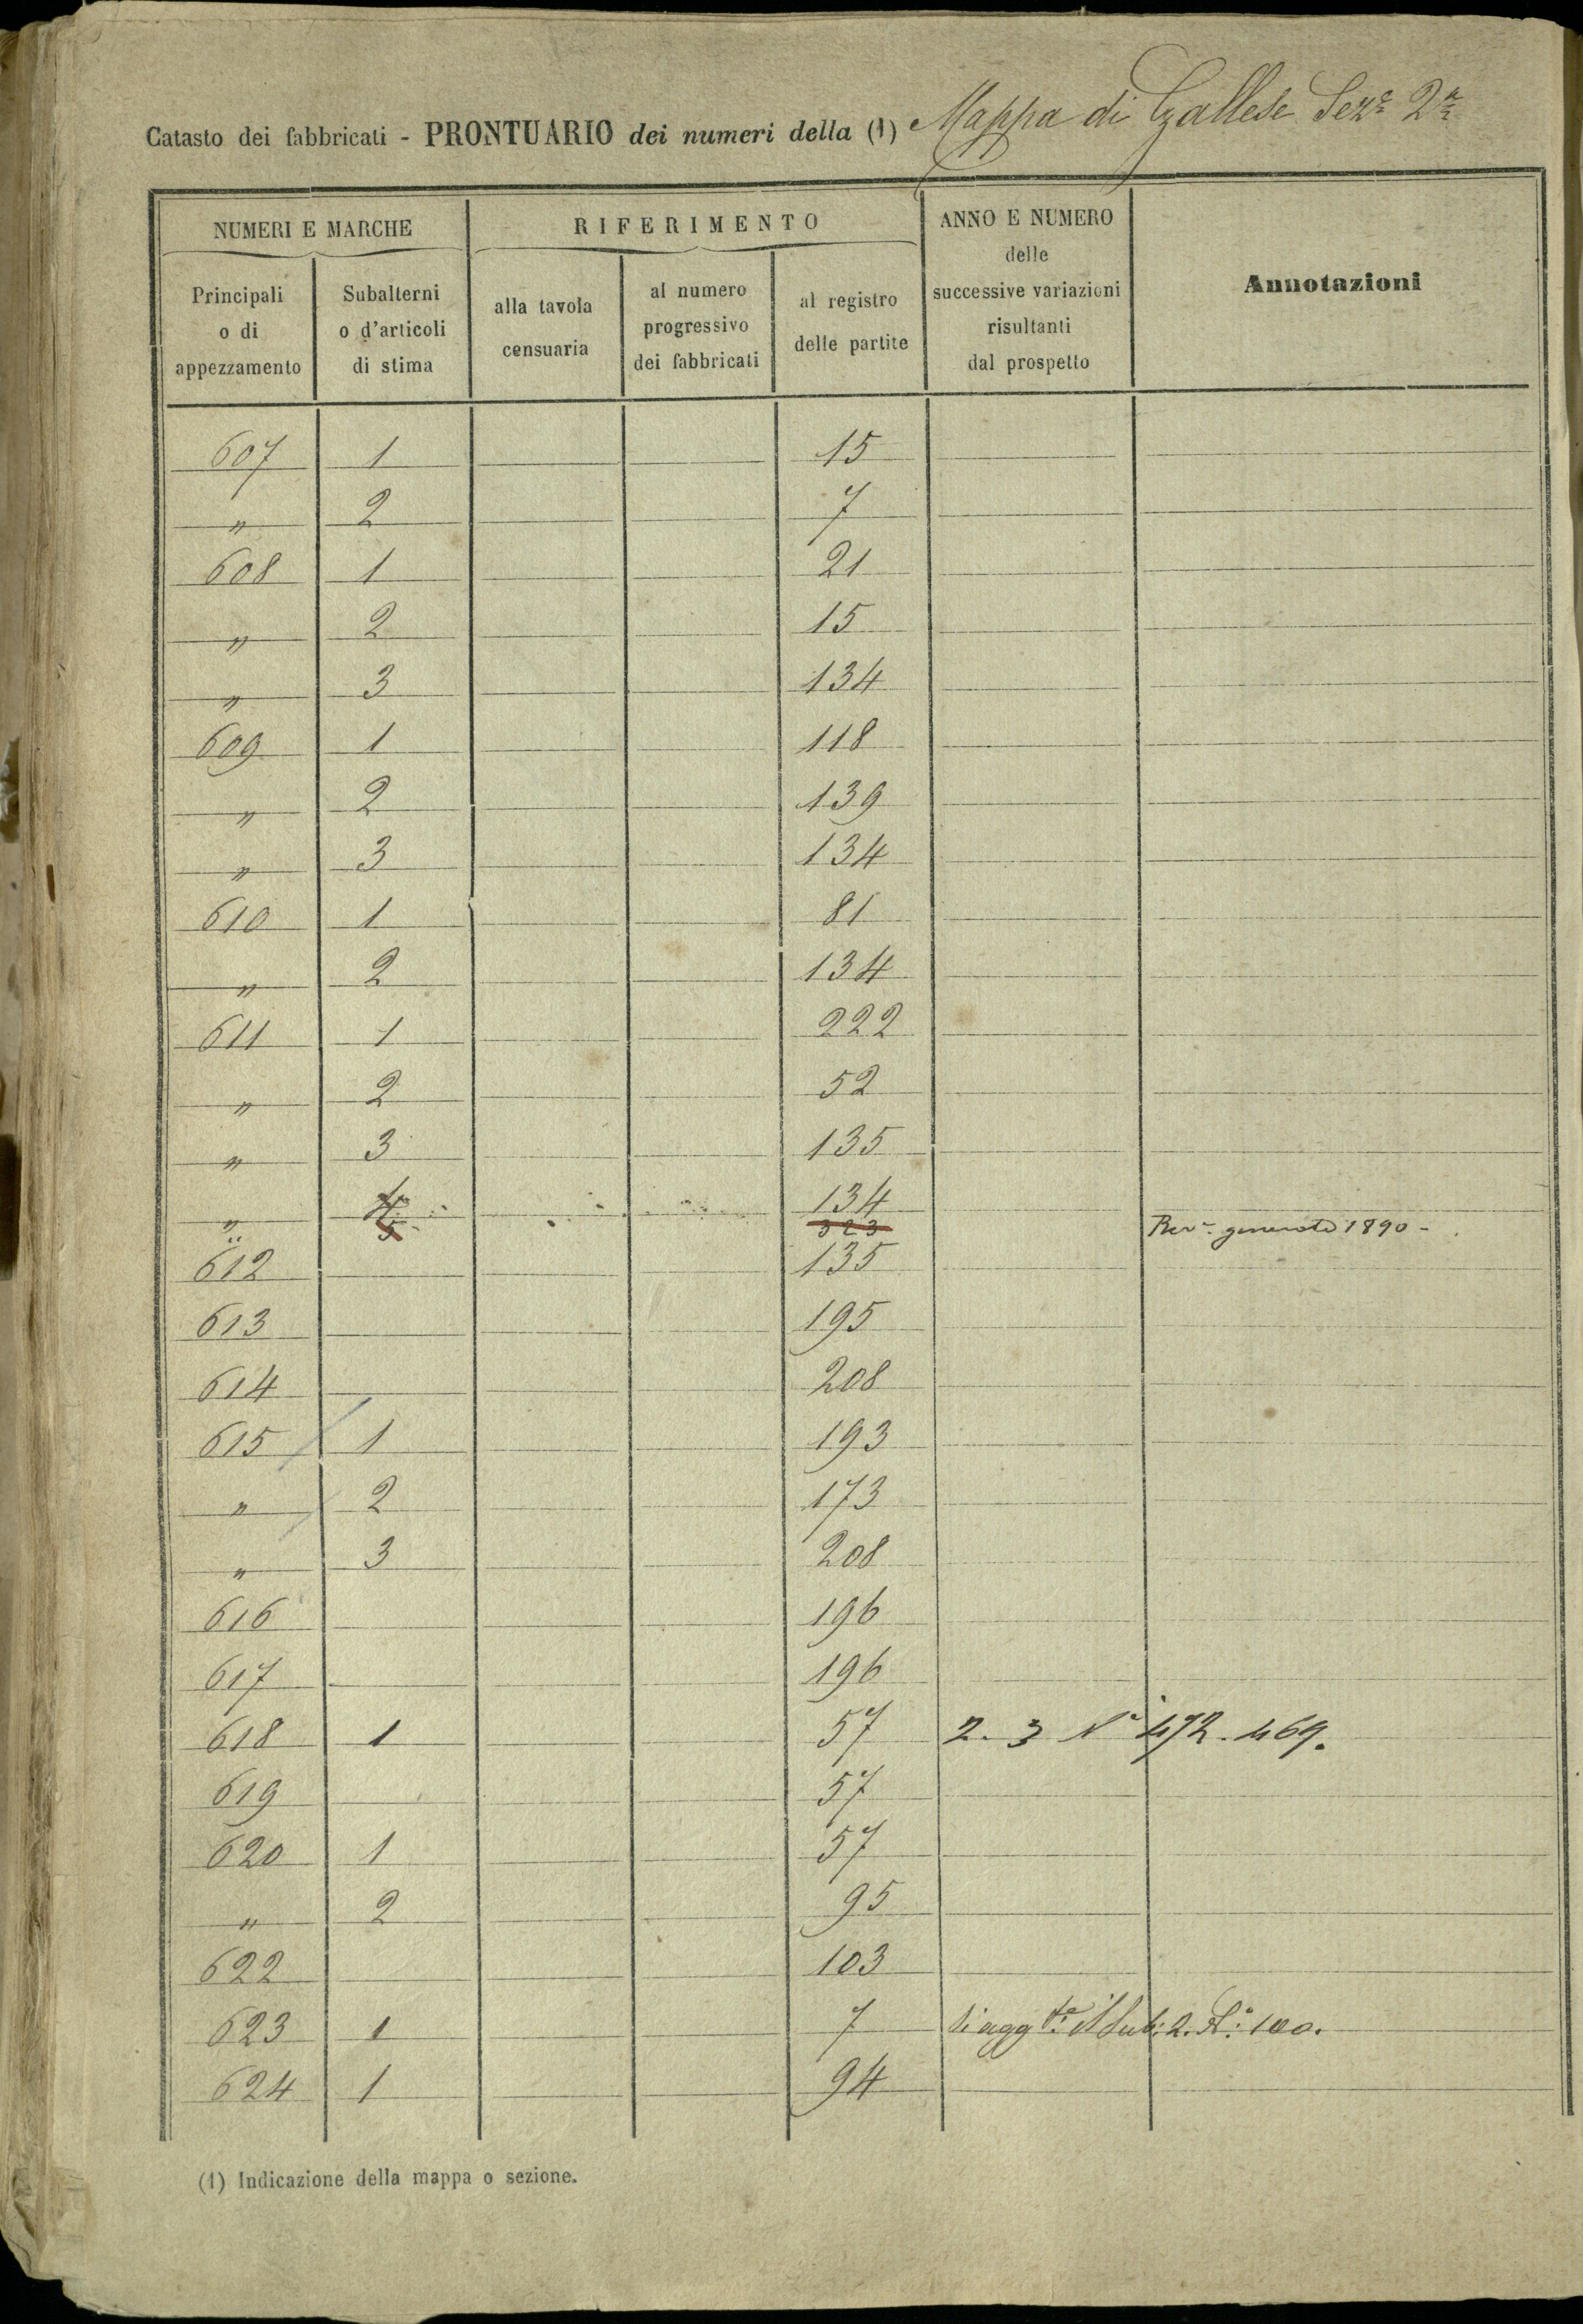 Catasto dei fabbricati - PRONTUARIO dei numeri della (1) Mappa di Gallese Sezᵉ 2ª
NUMERI E MARCHE RIFERIMENTO ANNO E NUMERO delle successive variazioni risultanti dal prospetto Annotazioni
Principali o di appezzamento Subalterni o d'articoli di stima alla tavola censuaria al numero progressivo dei fabbricati al registro delle partite
607 1 15
" 2 7
608 1 21
" 2 15
" 3 134
609 1 118
" 2 139
" 3 134
610 1 81
" 2 134
611 1 222
" 2 52
" 3 135
" 4 134
" 5 323 Rev. generale 1890 -
612 135
613 195
614 208
615 1 193
" 2 173
" 3 208
616 196
617 196
618 1 57 2. 3 N° 472. 469.
619 57
620 1 57
" 2 95
622 103
623 1 7 Si agg Sub: 2. 100.
624 1 94
(1) Indicazione della mappa o sezione.